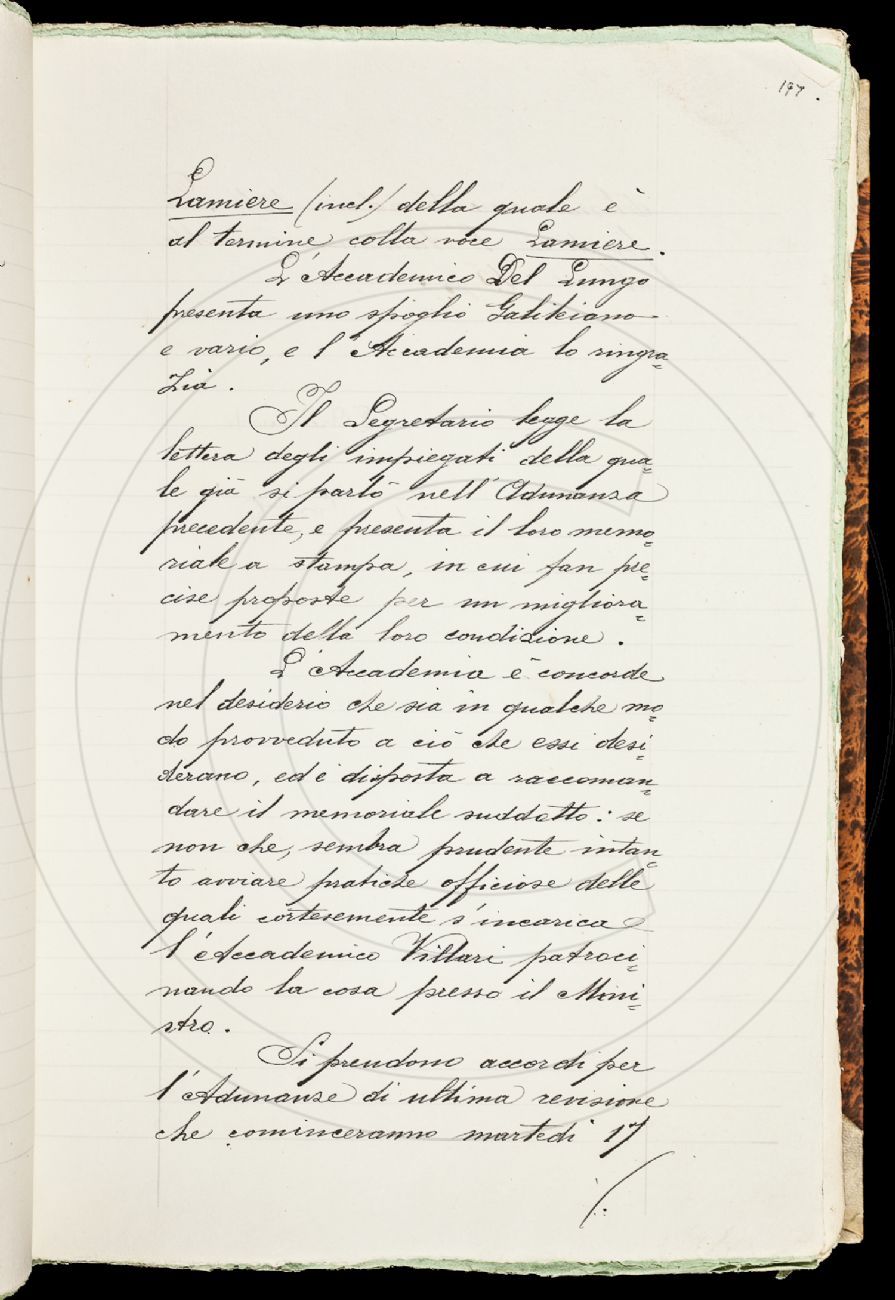 197.
Lamiere (incl.) della quale è
al termine colla voce Lamiere.
L'Accademico Del Lungo
presenta uno spoglio Galileiano
e vario, e l'Accademia lo ringra=
zia.
Il Segretario legge la
lettera degli impiegati della qua=
le già si parlò nell'Adunanza
precedente, e presenta il loro memo=
riale a stampa, in cui fan pre=
cise proposte per un migliora=
mento della loro condizione.
L'Accademia è concorde
nel desiderio che sia in qualche mo=
do provveduto a ciò che essi desi=
derano, ed è disposta a raccoman=
dare il memoriale suddetto: se
non che, sembra prudente intan=
to avviare pratiche officiose delle
quali cortesemente s'incarica
l'Accademico Villari patroci=
nando la cosa presso il Mini=
stro.
Si prendono accordi per
l'Adunanze di ultima revisione
che cominceranno martedì 17
./.